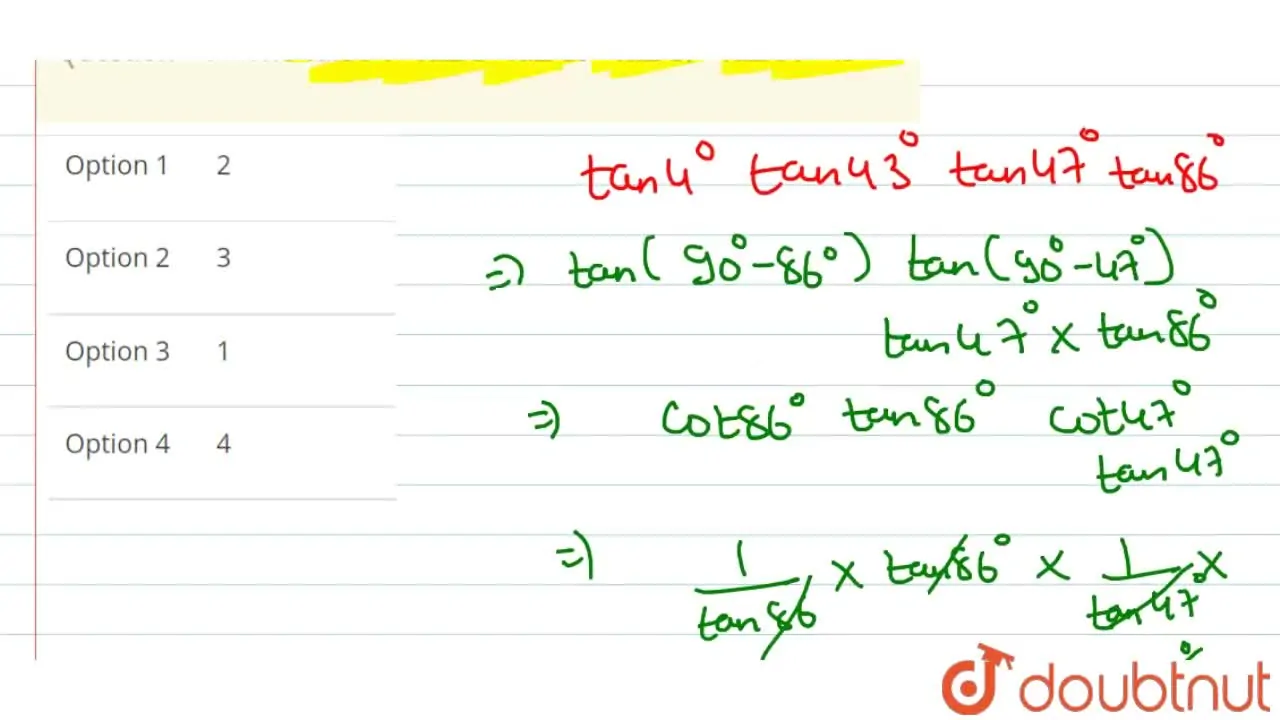 Option 1 2
Option 2 3
Option 3 1
Option 4 4
tan4° tan43° tan47° tan86°
=) tan(90°-86°) tan(90°-47°)
tan47° x tan86°
=) cot86° tan86° cot47°
tan47°
=) 1/tan86 x tan86° x 1/tan47° x
doubtnut